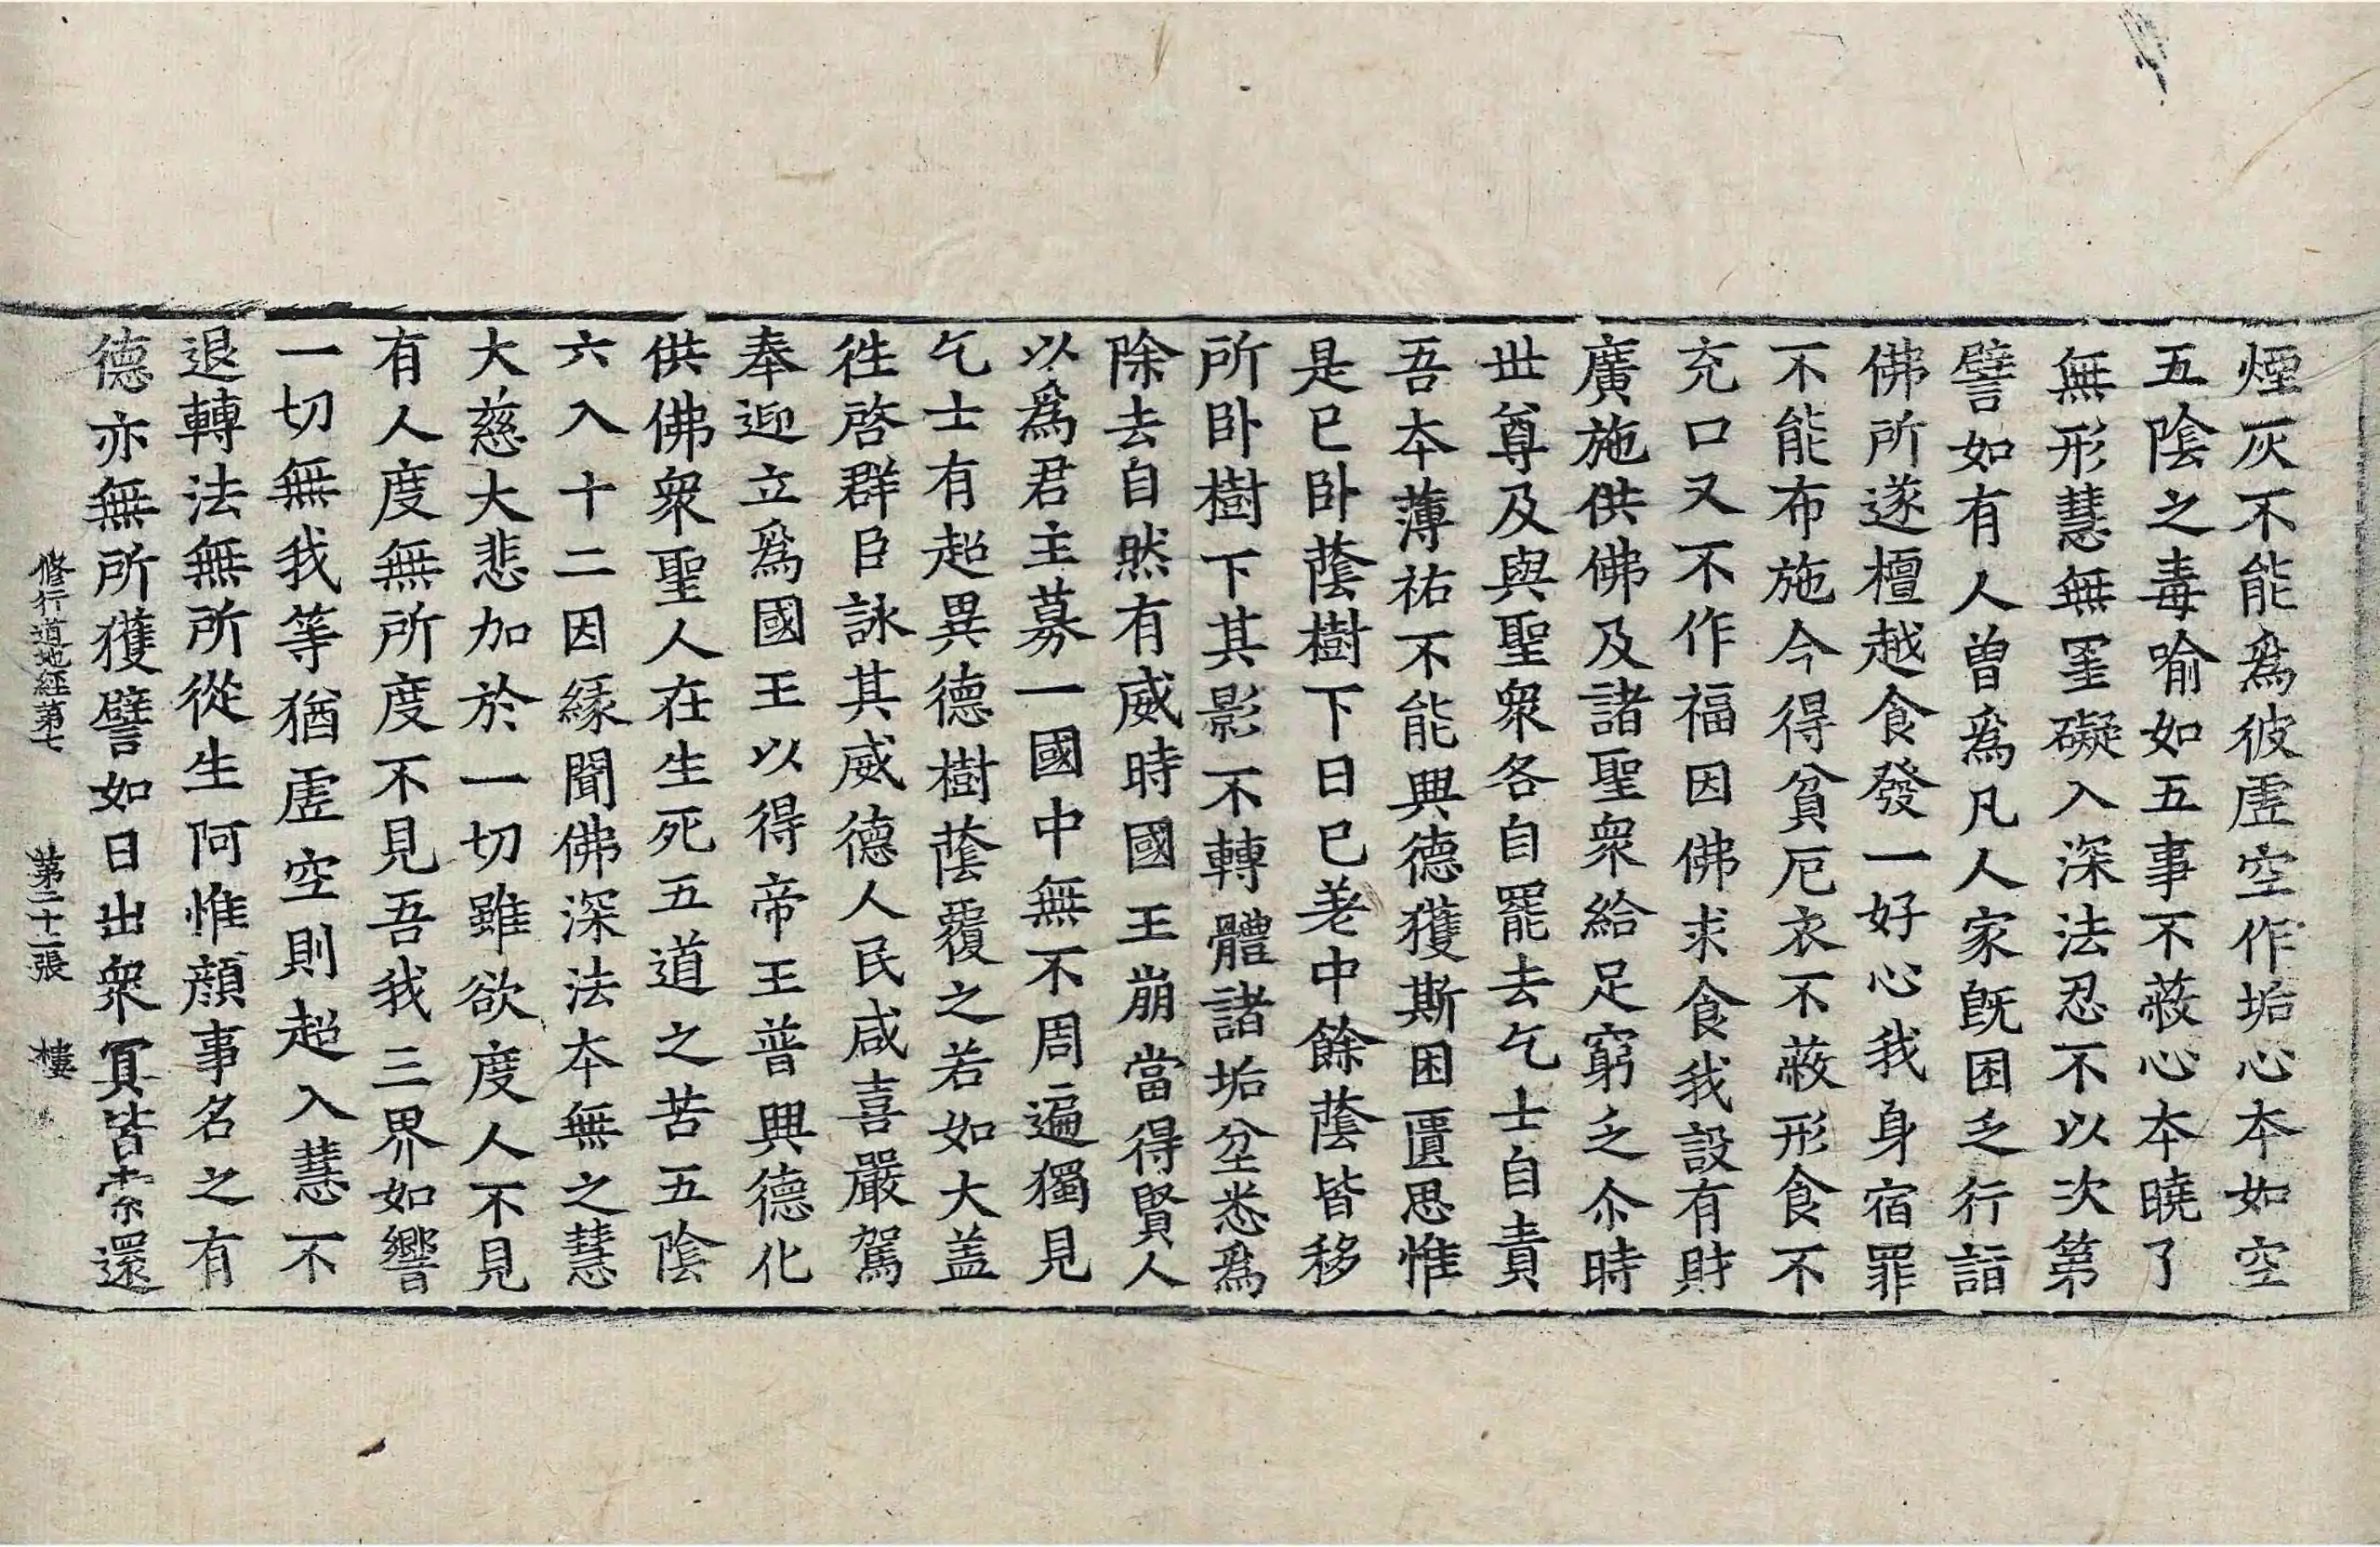 煙灰不能爲彼虛空作垢心本如空
五陰之毒喻如五事不蔽心本曉了
無形慧無罣礙入深法忍不以次第
譬如有人曽爲凡人家旣困乏行詣
佛所遂檀越食發一好心我身宿罪
不能布施今得貧厄衣不蔽形食不
充口又不作福因佛求食我設有財
廣施供佛及諸聖衆給足窮乏尒時
世尊及與聖衆各自罷去乞士自責
吾本薄祐不能興德獲斯困匱思惟
是已卧蔭樹下日已差中餘蔭皆移
所卧樹下其影不轉體諸垢坌悉爲
除去自然有威時國王崩當得賢人
以爲君主募一國中無不周遍獨見
乞士有超異德樹蔭覆之若如大盖
徃啓群臣詠其威德人民咸喜嚴駕
奉迎立爲國王以得帝王普興德化
供佛衆聖人在生死五道之苦五陰
六入十二因緣聞佛深法本無之慧
大慈大悲加於一切雖欲度人不見
有人度無所度不見吾我三界如響
一切無我等猶虛空則超入慧不
退轉法無所從生阿惟顔事名之有
德亦無所獲譬如日出衆冥皆索還
修行道地經第七　第二十二張　樓